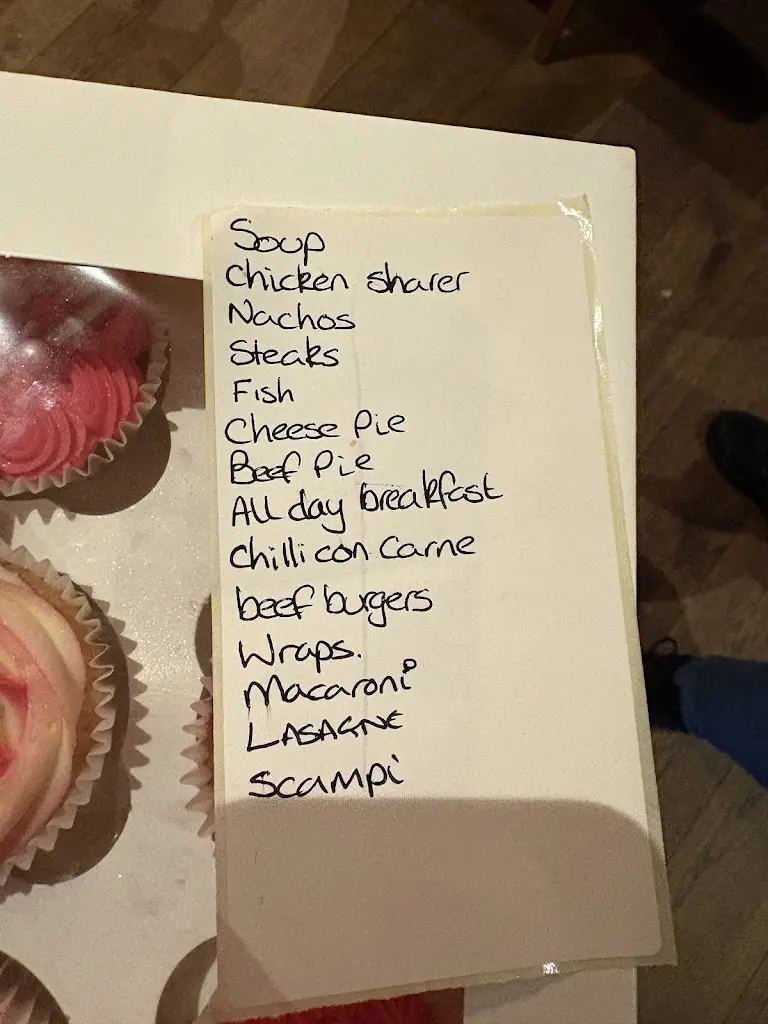 Soup
Chicken sharer
Nachos
Steaks
Fish
Cheese Pie
Beef Pie
All day breakfast
Chilli con Carne
beef burgers
Wraps.
Macaroni
LASAGNE
Scampi